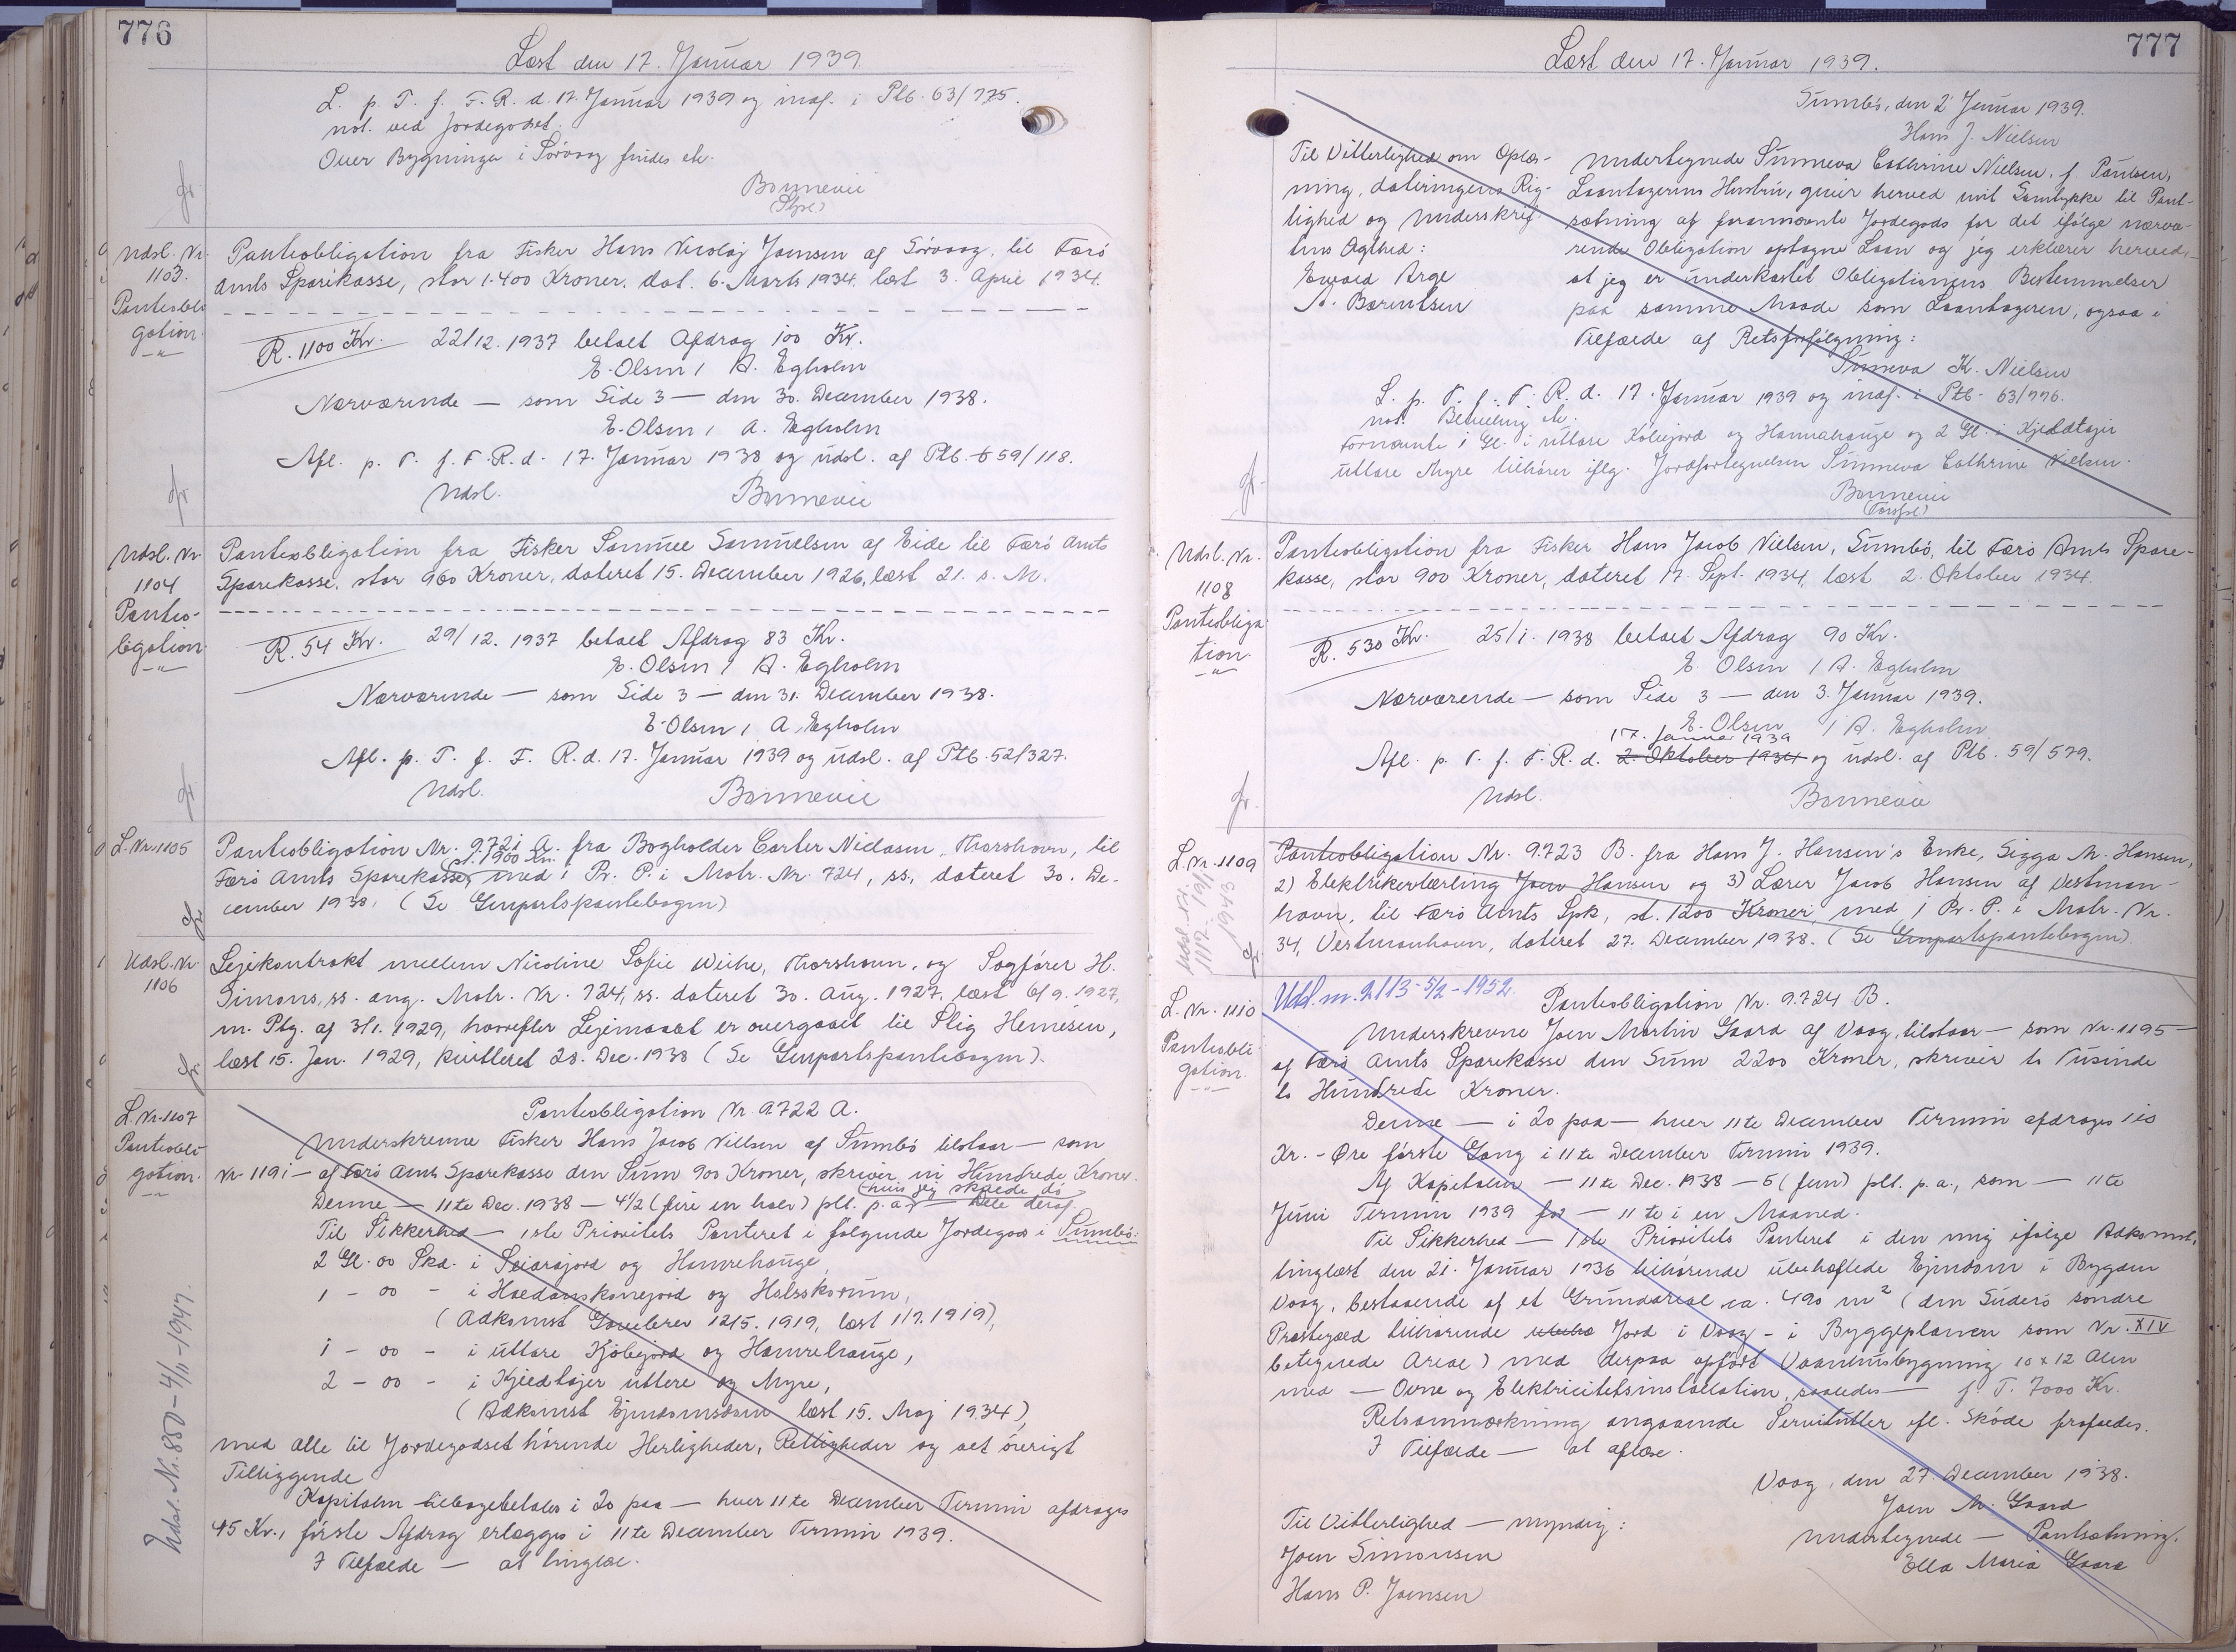 776
Læst den 17. Januar 1939
L. p. T. f. F. R. d. 17. Januar 1939 og indf. i Ptb. 63/775.
not. ved Jordegodset.
Over Bygninger i Sörvaag findes etc.
Bonnevie
Udsl. Nr. 1103.
Panteobligation
Panteobligation fra Fisker Hans Nicolaj Joensen af Sörvaag, til Færö
Amts Sparekasse, stor 1.400 Kroner, dat. 6. Marts 1934. læst 3. April 1934.
R. 1100 Kr. 22/12. 1937 betalt Afdrag 100 Kr.
E. Olsen / A. Egholm
Nærværende — som Side 3 — den 30. December 1938.
E. Olsen / A. Egholm
Afl. p. T. f. F. R. d. 17. Januar 1938 og udsl. af Ptb. 59/118.
Udsl. Bonnevie
Udsl. Nr 1104
Panteobligation
Panteobligation fra Fisker Samuel Samuelsen af Eide til Færö Amts
Sparekasse, stor 960 Kroner, dateret 15. December 1926, læst 21. s. M.
R. 54 Kr. 29/12. 1937 betalt Afdrag 83 Kr.
E. Olsen / A. Egholm
Nærværende — som Side 3 — den 31. December 1938.
E. Olsen / A. Egholm
Afl. p. T. f. F. R. d. 17. Januar 1939 og udsl. af Ptb. 52/327.
Udsl. Bonnevie
L. Nr. 1105
Panteobligation Nr. 9.721 A. fra Bogholder Carter Niclasen, Thorshavn, til
Færö Amts Sparekasse, st. 1900 Kr. med 1 Pr. P. i Matr. Nr. 724, ss., dateret 30. De-
cember 1938. (Se Genpartspantebogen)
Udsl. Nr 1106
Lejekontrakt mellem Nicoline Sofie Weihe, Thorshavn, og Sagförer H.
Simons, ss. ang. Matr. Nr. 724, ss. dateret 30. Aug. 1927, læst 6/9. 1927,
m. Ptg. af 3/1. 1929, hvorefter Lejemaalet er overgaaet til Stig Hennesen,
læst 15. Jan. 1929, kvitteret 28. Dec. 1938 (Se Genpartspantebogen).
L. Nr. 1107
Panteobligation
Panteobligation Nr 9.722 A.
Underskrevne Fisker Hans Jacob Nielsen af Sumbö tilstaar — som
Nr. 1191 — af Færö Amts Sparekasse den Sum 900 Kroner, skriver ni Hundrede Kroner.
Denne — 11te Dec. 1938 — 4 1/2 (fire en halv) pCt. p. a. — (hvis jeg skulde dö — Dele deraf.
Til Sikkerhed — 1ste Prioritets Panteret i fölgende Jordegods i Sumbö:
2 Gl. 00 Skd. i Seiarajord og Hamrehauge,
1 - 00 - i Haedanskorejord og Halsskorum,
(Adkomst Gavebrev 12/5. 1919, læst 1/7. 1919),
1 - 00 - i uttare Kjölejord og Hamrehauge,
2 - 00 - i Kjeldtojer uttere og Myre,
(Adkomst Ejendomsdom læst 15. Maj 1934),
med alle til Jordegodset hörende Herligheder, Rettigheder og det övrigt
Tilliggende
Kapitalen tilbagebetales i 20 paa — hver 11te December Termin afdrages
45 Kr., förste Afdrag erlægges i 11te December Termin 1939.
I Tilfælde — at tinglæse.
Udsl. Nr. 880 - 4/11 - 1947.
777
Læst den 17. Januar 1939.
Sumbö, den 2 Januar 1939.
Hans J. Nielsen
Til Vitterlighed om Oplæs-
ning, dateringens Rig-
tighed og Underskrif-
tens Ægthed:
Ewald Arge
A. Barentsen
Undertegnede Sunneva Cathrine Nielsen, f. Poulsen,
Laantagerens Hustru, giver herved mit Samtykke til Pant-
sætning af forannævnte Jordegods for det ifölge nærvæ-
rende Obligation optagne Laan og jeg erklærer herved,
at jeg er underkastet Obligationens Bestemmelser
paa samme Maade som Laantageren, ogsaa i
Tilfælde af Retsforfölgning:
Sunneva K. Nielsen
L. p. T. f. F. R. d. 17. Januar 1939 og indf. i Ptb. 63/776.
not. Bevilling etc.
Fornævnte 1 Gl. i uttare Kölejord og Hamrahauge og 2 Gl. i Kjeldtojer
uttare Myre tilhörer iflg. Jordfortegnelsen Sunneva Cathrine Nielsen.
Bonnevie
Udsl. Nr. 1108
Panteobligation
Panteobligation fra Fisker Hans Jacob Nielsen, Sumbö, til Færö Amts Spare-
kasse, stor 900 Kroner, dateret 17. Sept. 1934, læst 2. Oktober 1934.
R. 530 Kr. 25/1. 1938 betalt Afdrag 90 Kr.
E. Olsen / A. Egholm
Nærværende — som Side 3 — den 3. Januar 1939.
E. Olsen / A. Egholm
17. Januar 1939
Afl. p. T. f. F. R. d. 2. Oktober 1934 og udsl. af Ptb. 59/579.
Udsl. Bonnevie
L. Nr. 1109
Panteobligation Nr. 9.723 B. fra Hans J. Hansen's Enke, Sigga M. Hansen,
2) Elektrikerlærling Joen Hansen og 3) Lærer Jacob Hansen af Vestman-
havn, til Færö Amts Spk, st. 1200 Kroner, med 1 Pr. P. i Matr. Nr.
34, Vestmanhavn, dateret 27. December 1938. (Se Genpartspantebogen).
L. Nr. 1110
Panteobligation
Udsl. nr. 2113 - 5/2 - 1952.
Panteobligation Nr. 9.724 B.
Underskrevne Joen Martin Gaard af Vaag, tilstaar — som Nr. 1195 —
af Færö Amts Sparekasse den Sum 2200 Kroner, skriver to Tusinde
to Hundrede Kroner.
Denne — i 20 paa — hver 11te December Termin afdrages 110
Kr. - Öre förste Gang i 11te December Termin 1939.
Af Kapitalen — 11te Dec. 1938 — 5 (fem) pCt. p. a., som — 11te
Juni Termin 1939 for — 11te i en Maaned.
Til Sikkerhed — 1ste Prioritets Panteret i den mig ifölge Adkomst,
tinglæst den 21. Januar 1936 tilhörende ubehæftede Ejendom i Bygden
Vaag, bestaaende af et Grundareal ca. 490 m² (den Suderö söndre
Præstegæld tilhörende Jord i Vaag - i Byggeplanen som Nr. XIV
betegnede Areal) med derpaa opfört Vaaninhusbygning 10 x 12 Alen
med — Ovne og Elektricitetsinstallation, saaledes — f. T. 7000 Kr.
Retsanmærkning angaaende Servitutter ifl. Sköde frafaldes.
I Tilfælde — at aflæse.
Vaag, den 27. December 1938.
Joen M. Gaard
Til Vitterlighed — myndig:
Joen Simonsen
Hans P. Joensen
Undertegnede — Pantsætning.
Ella Maria Gaard